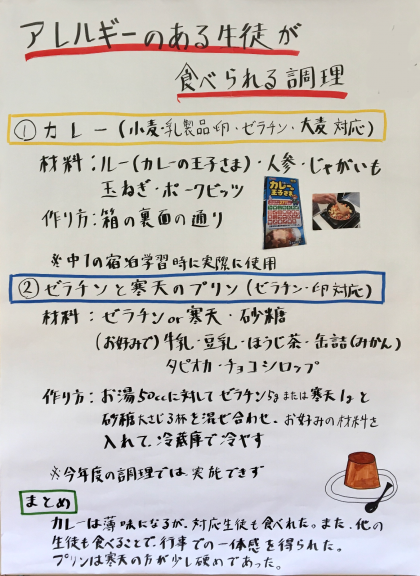 アレルギーのある生徒が
食べられる調理
① カレー(小麦・乳製品・卵・ゼラチン・大麦 対応)
材料:ルー(カレーの王子さま)・人参・じゃがいも
玉ねぎ・ポークビッツ
作り方:箱の裏面の通り
カレーの王子さま
※中1の宿泊学習時に実際に使用
② ゼラチンと寒天のプリン(ゼラチン・卵対応)
材料:ゼラチンor寒天・砂糖
(お好みで)牛乳・豆乳・ほうじ茶・缶詰(みかん)
タピオカ・チョコシロップ
作り方:お湯50ccに対してゼラチン5gまたは寒天1gと
砂糖大さじ3杯を混ぜ合わせ、お好みの材料を
入れて、冷蔵庫で冷やす
※今年度の調理では実施できず
まとめ
カレーは薄味になるが、対応生徒も食べれた。また、他の
生徒も食べることで、行事での一体感を得られた。
プリンは寒天の方が少し硬めであった。